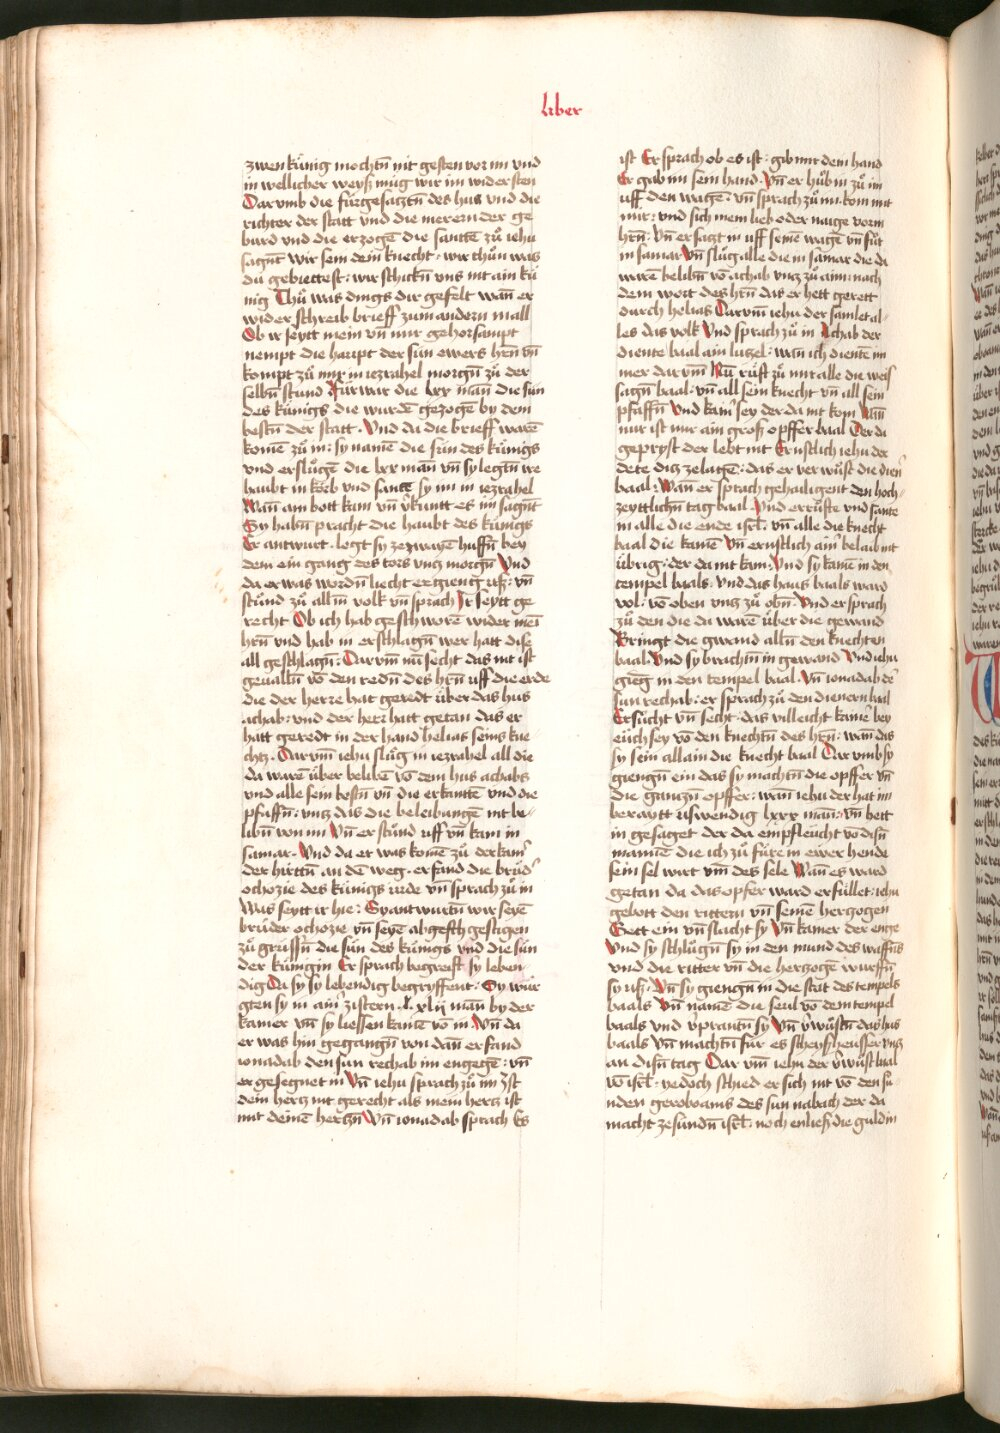 liber
zwen künig mochtn̄ nit gesten vor im vnd
in wellicher weyß müg wir im widersten
Darvmb die fürgesatztn̄ des hus vnd die
richter der statt vnd die merern der ge
burd vnd die erzogē die santtē zů iehu
sagn̄t wir sein dein knecht · wir thůn was
du gebiettest · wir schickn̄ vns nit ain kü
nig Thů was dings dir gefelt wān er
wider schreib brieff zum andern mall
Ob ir seytt mein vn̄ mir gehorsampt
nempt die haupt der sün ewers hrn̄ vn̄
kompt zů mir in iezrahel morgn̄ zů der
selbn̄ stund Fürwar die lxx man̄ die sün
des künigs die wurdē gezogē by dem
bestn̄ der statt · Vnd da die brieff warē
komē zů in: sy namē die sün des künigs
vnd erslůgē die lxx man vn̄ sy legtn̄ ire
haubt in körb vnd sante sy im in iezrahel
Wan̄ ain bott kam vn̄ v̓kuntt es im sagn̄t
Sy habn̄ pracht die haubt des künigs
Er antwurt · legt sy ze zwayē huffn̄ bey
dem ein gang des tors vntz morgn̄ Vnd
da er was wordn̄ liecht er gieng uß: vn̄
stůnd zů allm̄ volk vn̄ sprach Ir seytt ge
recht Ob ich hab geschworē wider mei
hrn̄ vnd hab in erschlagn̄ wer hatt dise
all geschlagn̄ · Darvm̄ nu secht das nit ist
geualln̄ vō den redn̄ des hrn̄ uff die erde
die der herre hat geredt über das hus
achab: vnd der herr hatt getan das er
hatt geredt in der hand helias seins kne
chtz · Darvm̄ iehu slůg in iezrahel all die
da warē über belibē vō dem hus achabs
vnd alle sein bestn̄ vn̄ die erkanttē vnd die
pfaffn̄: vntz das die beleibungē nit be
libn̄ von im Vn̄ er stůnd uff vn̄ kam in
samar · Vnd da er was komē zů der kam̓
der hirttn̄ an dē weg · er fand die brůd̓
ochozie des künigs iude vn̄ sprach zů in
Was seytt ir hie: Sy antwurtn̄ wir seyē
brüder ochozie vn̄ seyē abgesth gestigen
zů grüssn̄ die sün des künigs vnd die sün
der künigin Er sprach begreift sy leben
dig Da sy sy lebendig begryffent · Sy wür
gten sy in ain̓ zistern · lxlij man̄ by der
kamer vn̄ sy liessen kainē vō in · Vn̄ da
er was hin gegangn̄ von dan̄ er fand
ionadab den sun rechab im engegē · vn̄
er gesegnet in Vn̄ iehu sprach zů im Ist
dein hertz nit gerecht als mein hertz ist
mit deinē hertzn̄ Vn̄ ionadab sprach Es
ist Er sprach ob es ist · gib mir dein hand
Er gab im sein hand · Vn̄ er hůb in zů im
uff den wagē · vn̄ sprach zů im kom mit
mir: vnd sich mein lieb oder naige vorm
hrn̄ · Vn̄ er satzt in uff seinē wagē vn̄ fůrt
in samar Vn̄ slůg alle die in samar die da
warē belibn̄ vō achab vntz zů aim: nach
dem wort des hrn̄ das er hett gerett
durch helias Darvm̄ iehu der samlet al
les das volk Vnd sprach zů in Achab der
diente baal ain lützel: wan̄ ich dientē im
mer darvm̄ Nū růft zů mir alle die weis
sagn̄ baal: vn̄ all sein knecht vn̄ all sein
pfaffn̄ Vnd kain̓ sey der da nit kom Wan̄
mir ist nur ain groß opffer baal Der da
gepryst der lebt nit Ernstlich iehu der
dete diß zelassē: das er verwüst die dien̓
baal · Wan̄ er sprach gehailigent den hoch
zeyttlichn̄ tag baal · Vnd er růfte vnd sante
in alle die ende isrl̄ · vn̄ alle die knecht
baal die kamē Vn̄ ernstlich ain̓ belaib nit
übrig: der da nit kam: Vnd sy kamē in den
tempel baals · vnd das haus baals ward
vol · vō oben vntz zů obn̄ · Vnd er sprach
zů den die da warē über die gewand
Bringt die gwand alln̄ den knechten
baal Vnd sy brachtn̄ in gewand Vnd iehu
gieng in den tempel baal · Vn̄ ionadab de̓
sun rechab: er sprach zů den dienern baal
Ersůcht vn̄ secht: das villeicht kainē bey
eüch sey vō den knechtn̄ des hrn̄: wan̄ das
sy sein allain die knecht baal Darvmb sy
giengn̄ ein das sy machtn̄ die opffer vn̄
die gantzn̄ opffer: wan̄ iehu der hat im
beraytt uswendig lxxx man̄: vn̄ hett
in gesaget der da empfleucht vō disn̄
mannē die ich zů füre in ewer hende
sein sel wirt vm̄ des sele Wan̄ es ward
getan da das opfer ward erfüllet: iehu
gebott den rittern vn̄ seinē hertzogen
Gett ein vn̄ slacht sy Vn̄ kainer der enge
Vnd sy schlůgn̄ sy in den mund des waffn̄s
vnd die ritter vn̄ die hertzogē wurffn̄
sy uß · Vn̄ sy giengn̄ in die stat des tempels
baals Vn̄ namē die seul vō dem tempel
baals vnd v̓prantn̄ sy Vn̄ v̓wůstn̄ das hus
baals Vn̄ machtn̄ für es scheyßheusser vntz
an disn̄ tag Dar vm̄ iehu der v̓wůst baal
vō isrl̄ · yedoch schied er sich nit vō den sü
nden geroboams des sun nabach der da
macht ze sündn̄ isrl̄: noch enließ die guldin